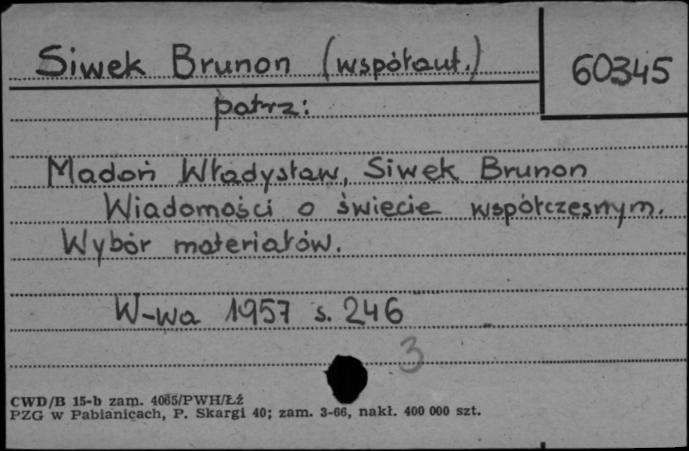 Siwek Brunon (współaut.)
60345
patrz:
Madoń Władysław, Siwek Brunon
Wiadomości o świecie współczesnym.
Wybór materiałów.
W-wa 1957 s. 246
3
CWD/B 15-b zam. 4065/PWH/Łź
PZG w Pabianicach, P. Skargi 40; zam. 3-66, nakł. 400 000 szt.